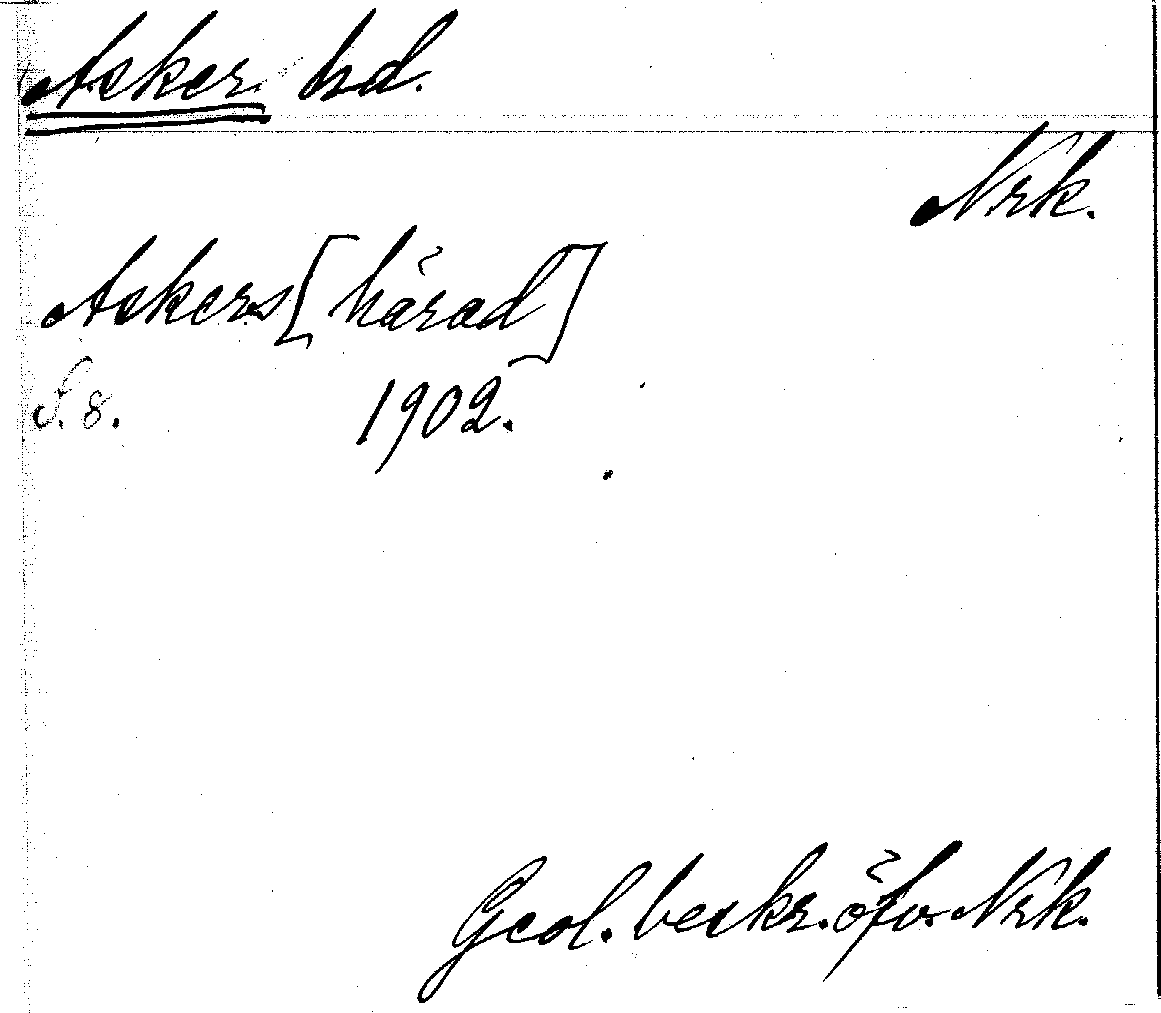 Asker hd.
Nrk.
Askers [härad]
S. 8. 1902.
Geol. beskr. öfv. Nrk.